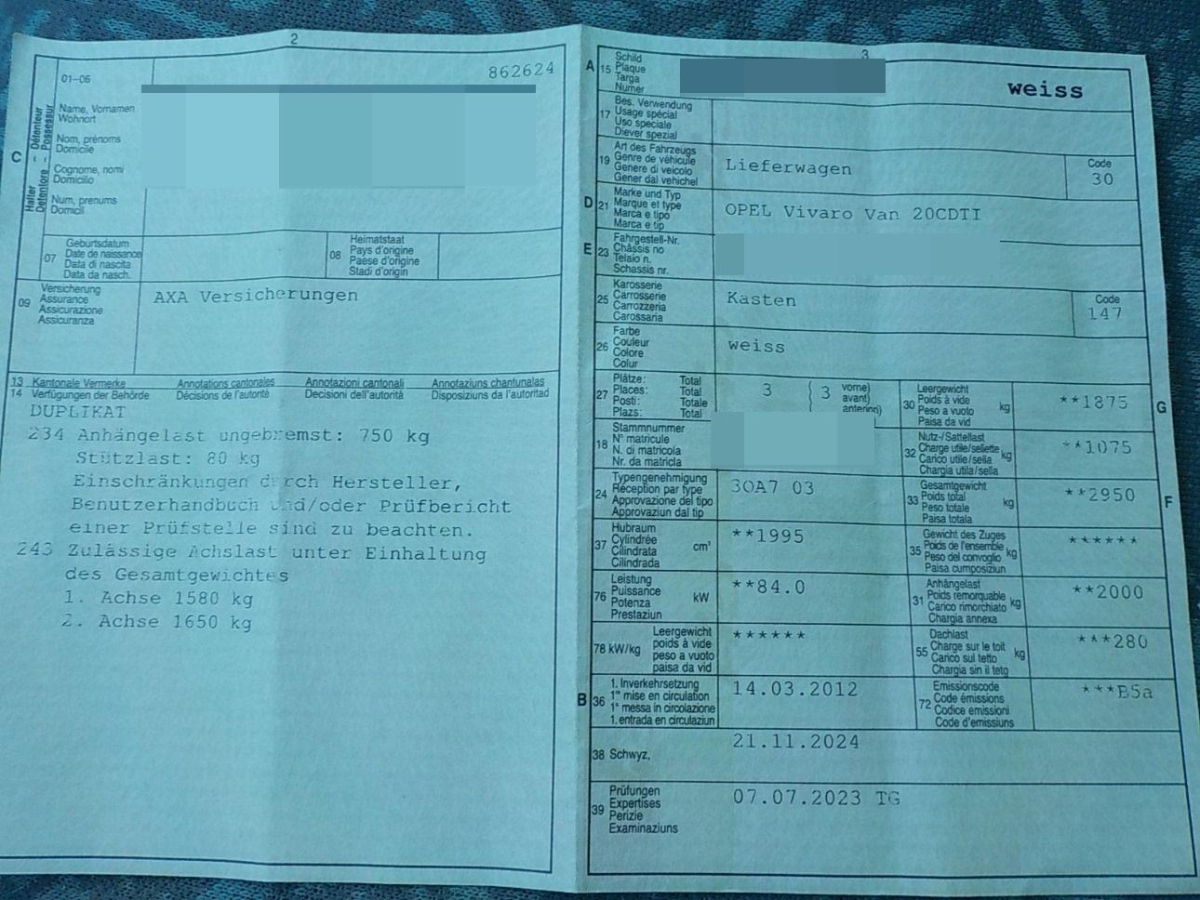 2
01-06
862624
C
Halter - Détenteur
Detentore - Possessur
Name, Vornamen
Wohnort
Nom, prénoms
Domicile
Cognome, nomi
Domicilio
Num, prenums
Domicil
07
Geburtsdatum
Date de naissance
Data di nascita
Data da nasch.
08
Heimatstaat
Pays d'origine
Paese d'origine
Stadi d'origin
09
Versicherung
Assurance
Assicurazione
Assicuranza
AXA Versicherungen
13 Kantonale Vermerke Annotations cantonales Annotazioni cantonali Annotaziuns chantunalas
14 Verfügungen der Behörde Décisions de l'autorité Decisioni dell'autorità Disposiziuns da l'autoritad
DUPLIKAT
234 Anhängelast ungebremst: 750 kg
Stützlast: 80 kg
Einschränkungen durch Hersteller,
Benutzerhandbuch und/oder Prüfbericht
einer Prüfstelle sind zu beachten.
243 Zulässige Achslast unter Einhaltung
des Gesamtgewichtes
1. Achse 1580 kg
2. Achse 1650 kg
3
A 15
Schild
Plaque
Targa
Numer
weiss
17
Bes. Verwendung
Usage spécial
Uso speciale
Diever spezial
19
Art des Fahrzeugs
Genre de véhicule
Genere di veicolo
Gener dal vehichel
Lieferwagen
Code
30
D 21
Marke und Typ
Marque et type
Marca e tipo
Marca e tip
OPEL Vivaro Van 20CDTI
E 23
Fahrgestell-Nr.
Châssis no
Telaio n.
Schassis nr.
25
Karosserie
Carrosserie
Carrozzeria
Carossaria
Kasten
Code
147
26
Farbe
Couleur
Colore
Colur
weiss
27
Plätze: Total
Places: Total
Posti: Totale
Plazs: Total
3 ( 3 vorne)
avant)
anteriori)
30
Leergewicht
Poids à vide
Peso a vuoto
Paisa da vid
kg
**1875
G
18
Stammnummer
N° matricule
N. di matricola
Nr. da matricla
32
Nutz-/Sattellast
Charge utile/sellette
Carico utile/sella
Chargia utila/sella
kg
**1075
24
Typengenehmigung
Réception par type
Approvazione del tipo
Approvaziun dal tip
3OA7 03
33
Gesamtgewicht
Poids total
Peso totale
Paisa totala
kg
**2950
F
37
Hubraum
Cylindrée
Cilindrata
Cilindrada
cm³
**1995
35
Gewicht des Zuges
Poids de l'ensemble
Peso del convoglio
Paisa cumposiziun
kg
******
76
Leistung
Puissance
Potenza
Prestaziun
kW
**84.0
31
Anhängelast
Poids remorquable
Carico rimorchiato
Chargia annexa
kg
**2000
78 kW/kg
Leergewicht
poids à vide
peso a vuoto
paisa da vid
******
55
Dachlast
Charge sur le toit
Carico sul tetto
Chargia sin il tetg
kg
***280
B 36
1. Inverkehrsetzung
1re mise en circulation
1a messa in circolazione
1. entrada en circulaziun
14.03.2012
72
Emissionscode
Code émissions
Codice emissioni
Code d'emissiuns
***B5a
38 Schwyz,
21.11.2024
39
Prüfungen
Expertises
Perizie
Examinaziuns
07.07.2023 TG